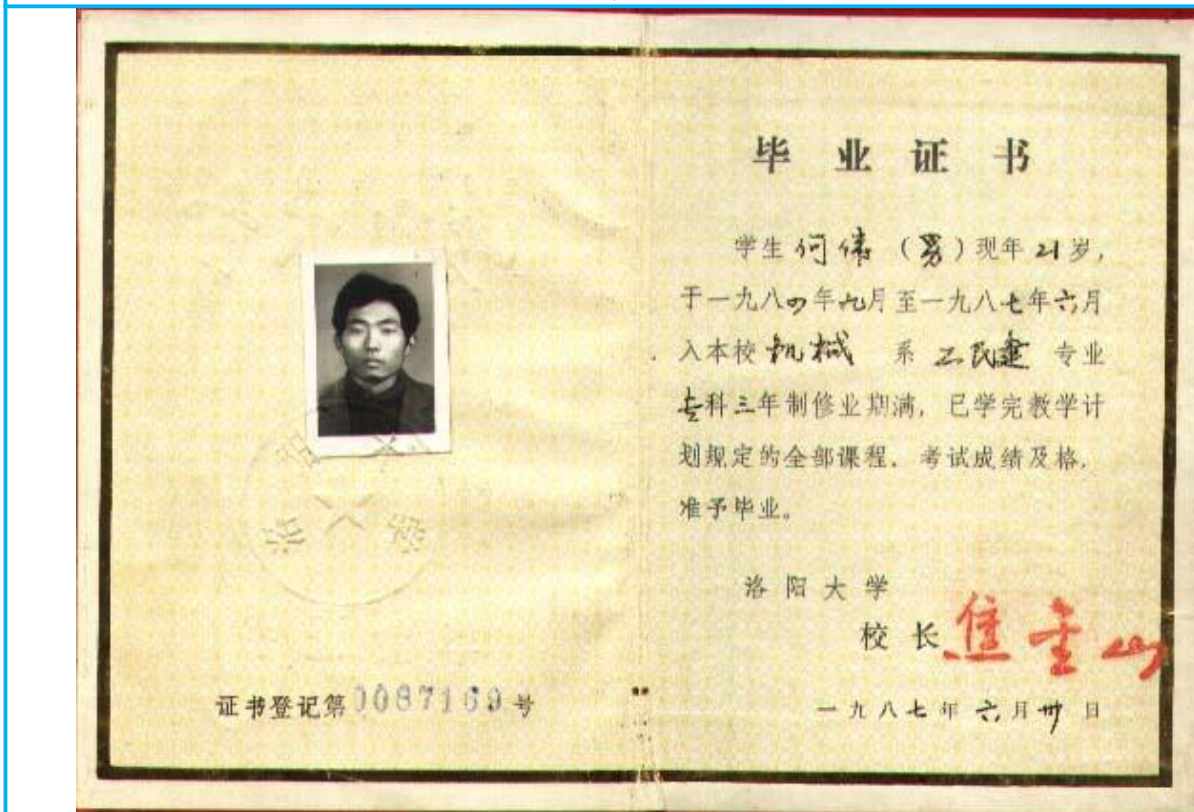 毕业证书
学生何伟（男）现年21岁，
于一九八四年九月至一九八七年六月
入本校机械 系 工民建 专业
专科三年制修业期满，已学完教学计
划规定的全部课程，考试成绩及格，
准予毕业。
洛阳大学
校长 焦金山
证书登记第0087169号
一九八七年六月卅日